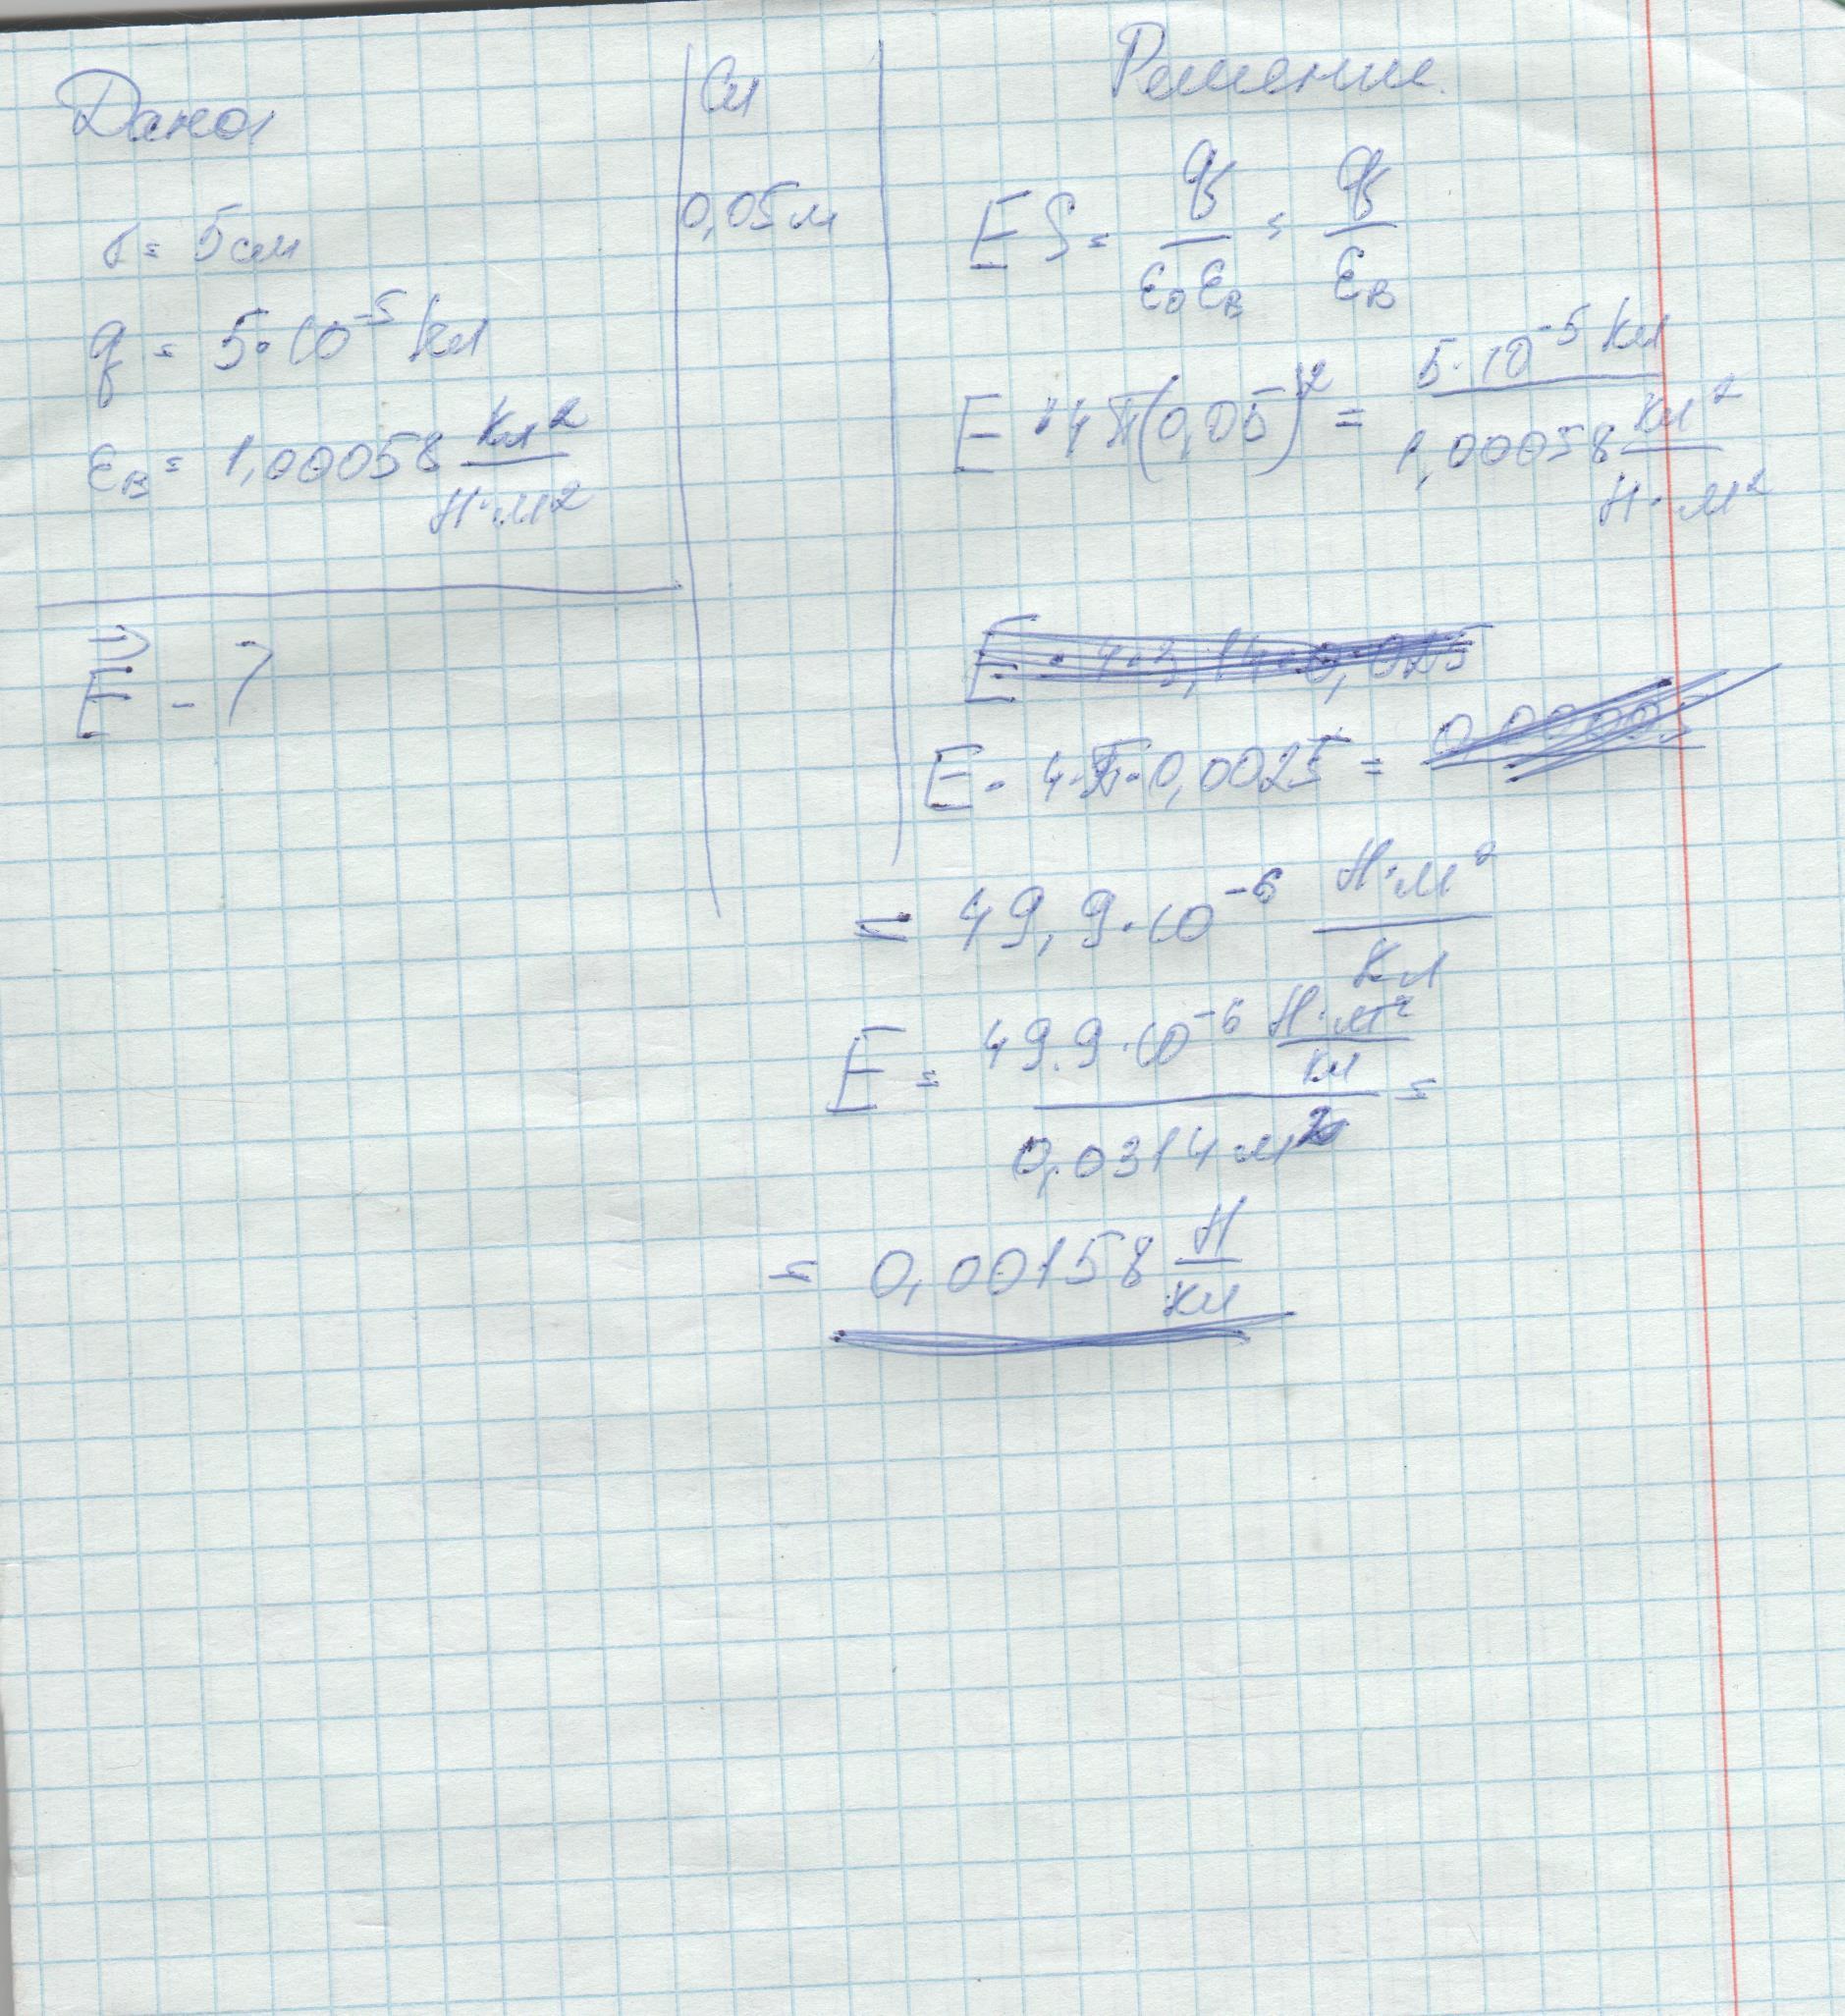 Дано:
r = 5 см
q = 5·10⁻⁵ Кл
ε_B = 1,00058 Кл²/Н·м²
E⃗ - ?
Си
0,05 м
Решение.
ES = q/ε₀ε_B = q/ε_B
E · 4π(0,05)² = 5·10⁻⁵ Кл / 1,00058 Кл²/Н·м²
E · 4·π·0,0025 =
= 49,9·10⁻⁶ Н·м²/Кл
E = 49.9·10⁻⁶ Н·м²/Кл / 0,0314 м² =
= 0,00158 Н/Кл